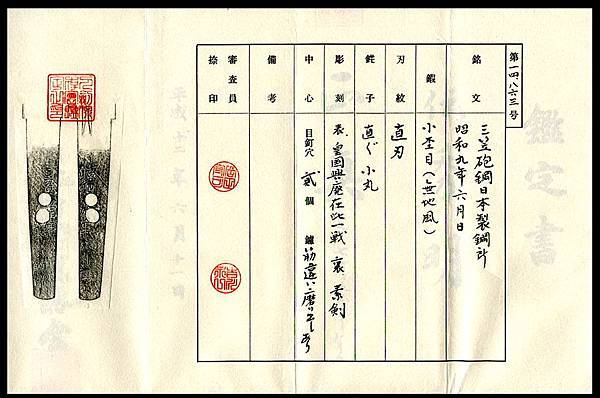 第一四八六三号
銘文
三笠砲鋼日本製鋼所
昭和九年六月日
鍜
小杢目(無地風)
刃紋
直刃
鋩子
直ぐ小丸
彫刻
表 皇國興廃在此一戦 裏 素剣
中心
目釘穴 貳個 鑢 筋違い
備考
審査員
捺印
鑑定書
平成十二年六月十一日